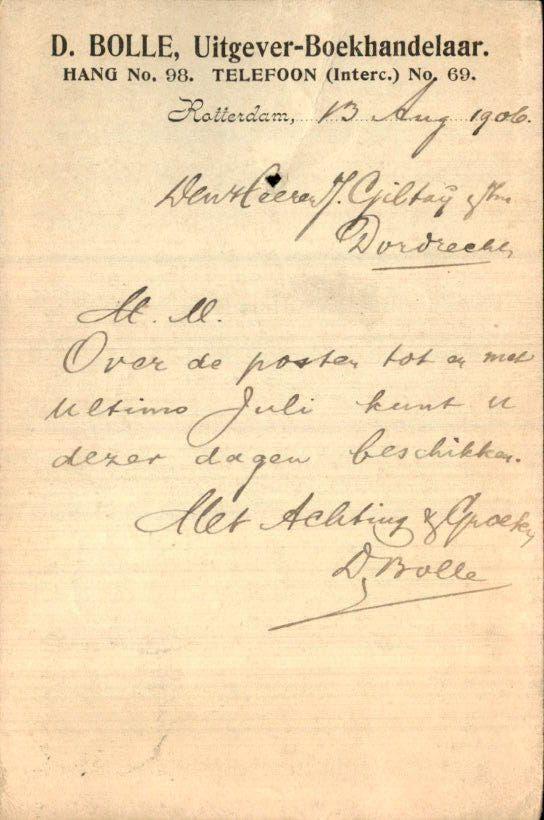 D. BOLLE, Uitgever-Boekhandelaar.
HANG No. 98. TELEFOON (Interc.) No. 69.
Rotterdam, 13 Aug 1906.
Den Heeren J. Giltaÿ & Zn
Dordrecht
M. M.
Over de posten tot en met
Ultimo Juli kunt u
dezer dagen beschikken.
Met Achting & Groeten
D Bolle